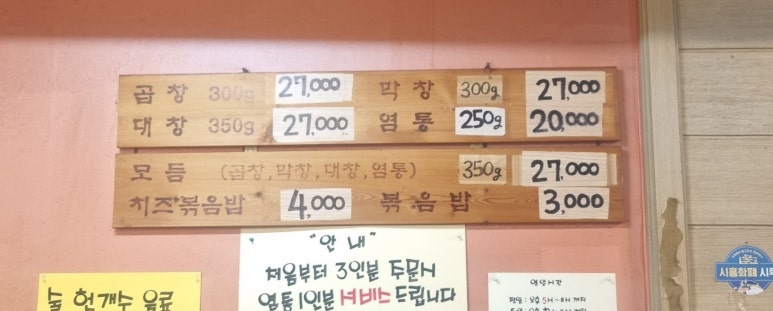 곱창 300g 27,000 막창 300g 27,000
대창 350g 27,000 염통 250g 20,000
모듬 (곱창,막창,대창,염통) 350g 27,000
치즈볶음밥 4,000 볶음밥 3,000
"안내"
처음부터 3인분 주문시
염통1인분 서비스 드립니다
술 헌개수 음료
영업시간
평일: 오후 5시~
시흥화폐 시루